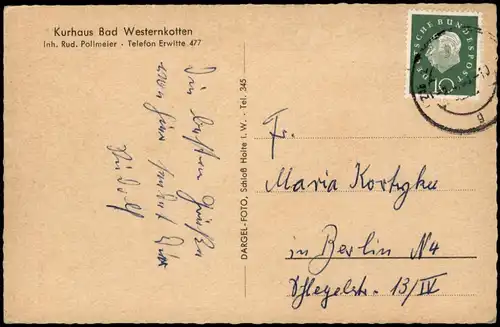 Kurhaus Bad Westernkotten
Inh. Rud. Pollmeier · Telefon Erwitte 477
Die besten Grüße
von hier sendet Dir
Rudolf
DARGEL-FOTO, Schloß Holte i. W. - Tel. 345
DEUTSCHE BUNDESPOST
10
Fr.
Maria Kortyka
in Berlin N4
Schlegelstr. 13/IV